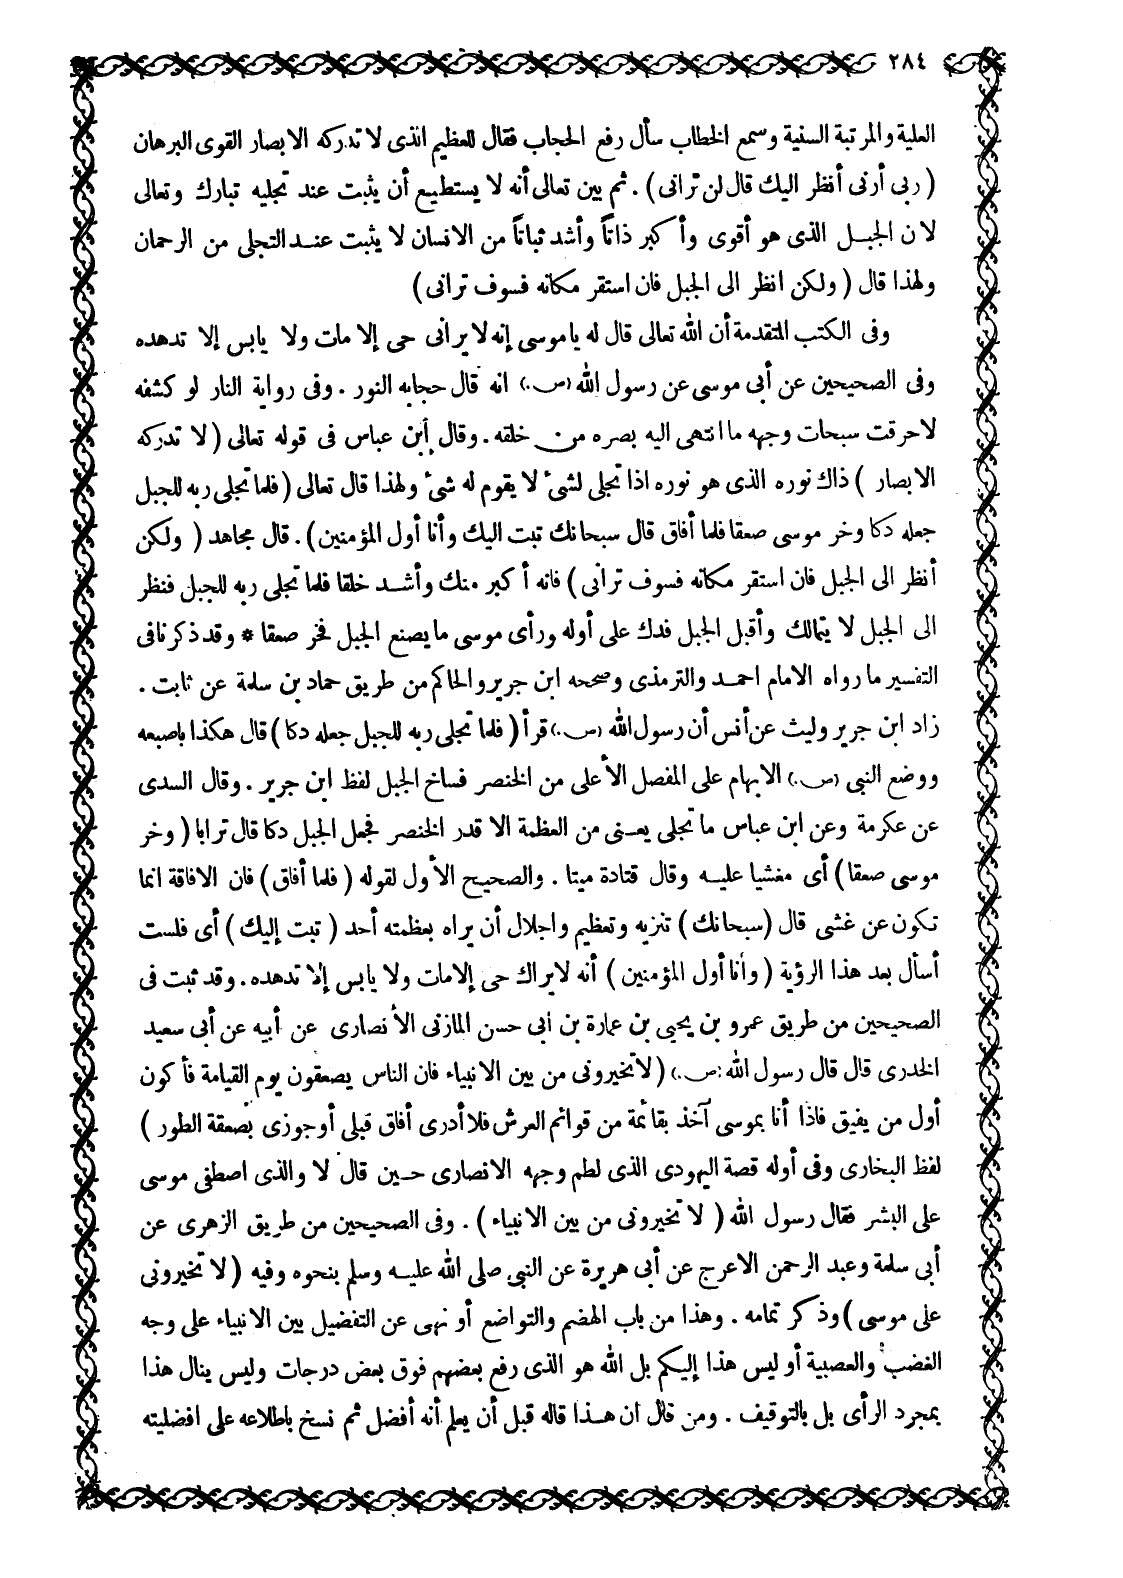 ٢٨٤
العلية والمرتبة السنية وسمع الخطاب سأل رفع الحجاب فقال للعظيم الذى لا تدركه الابصار القوى البرهان
( ربى أرنى أنظر اليك قال لن ترانى ) . ثم بين تعالى أنه لا يستطيع أن يثبت عند تجليه تبارك وتعالى
لان الجبل الذى هو أقوى وأكبر ذاتاً وأشد ثباتاً من الانسان لا يثبت عند التجلى من الرحمان
ولهذا قال ( ولكن انظر الى الجبل فان استقر مكانه فسوف ترانى )
وفى الكتب المتقدمة أن الله تعالى قال له يا موسى إنه لا يرانى حى إلا مات ولا يابس إلا تدهده
وفى الصحيحين عن أبى موسى عن رسول الله (ص.) انه قال حجابه النور . وفى رواية النار لو كشفه
لاحرقت سبحات وجهه ما انتهى اليه بصره من خلقه . وقال أبن عباس فى قوله تعالى ( لا تدركه
الابصار ) ذاك نوره الذى هو نوره اذا تجلى لشىء لا يقوم له شىء ولهذا قال تعالى ( فلما تجلى ربه للجبل
جعله دكا وخر موسى صعقا فلما أفاق قال سبحانك تبت اليك وأنا أول المؤمنين ) . قال مجاهد ( ولكن
أنظر الى الجبل فان استقر مكانه فسوف ترانى ) فانه أكبر منك وأشد خلقا فلما تجلى ربه للجبل فنظر
الى الجبل لا يتمالك وأقبل الجبل فدك على أوله ورأى موسى ما يصنع الجبل فخر صعقا * وقد ذكرنا فى
التفسير ما رواه الامام احمد والترمذى وصححه ابن جرير والحاكم من طريق حماد بن سلمة عن ثابت .
زاد ابن جرير وليث عن أنس أن رسول الله (ص.) قرأ ( فلما تجلى ربه للجبل جعله دكا ) قال هكذا باصبعه
ووضع النبى (ص.) الابهام على المفصل الأعلى من الخنصر فساخ الجبل لفظ ابن جرير . وقال السدى
عن عكرمة وعن ابن عباس ما تجلى يعنى من العظمة الا قدر الخنصر فجعل الجبل دكا قال ترابا ( وخر
موسى صعقا ) أى مغشيا عليه وقال قتادة ميتا . والصحيح الأول لقوله ( فلما أفاق ) فان الافاقة انما
تكون عن غشى قال ( سبحانك ) تنزيه وتعظيم واجلال أن يراه بعظمته أحد ( تبت إليك ) أى فلست
أسأل بعد هذا الرؤية ( وأنا أول المؤمنين ) أنه لا يراك حى إلا مات ولا يابس إلا تدهده . وقد ثبت فى
الصحيحين من طريق عمرو بن يحيى بن عمارة بن ابى حسن المازنى الأنصارى عن أبيه عن أبى سعيد
الخدرى قال قال رسول الله (ص.) ( لا تخيرونى من بين الانبياء فان الناس يصعقون يوم القيامة فأكون
أول من يفيق فاذا أنا بموسى آخذ بقائمة من قوائم العرش فلا أدرى أفاق قبلى أو جوزى بصعقة الطور )
لفظ البخارى وفى أوله قصة اليهودى الذى لطم وجهه الانصارى حين قال لا والذى اصطفى موسى
على البشر فقال رسول الله ( لا تخيرونى من بين الانبياء ) . وفى الصحيحين من طريق الزهرى عن
أبى سلمة وعبد الرحمن الاعرج عن أبى هريرة عن النبى صلى الله عليه وسلم بنحوه وفيه ( لا تخيرونى
على موسى ) وذكر تمامه . وهذا من باب الهضم والتواضع أو نهى عن التفضيل بين الانبياء على وجه
الغضب والعصبية أو ليس هذا إليكم بل الله هو الذى رفع بعضهم فوق بعض درجات وليس ينال هذا
بمجرد الرأى بل بالتوقيف . ومن قال ان هذا قاله قبل أن يعلم أنه أفضل ثم نسخ باطلاعه على افضليته